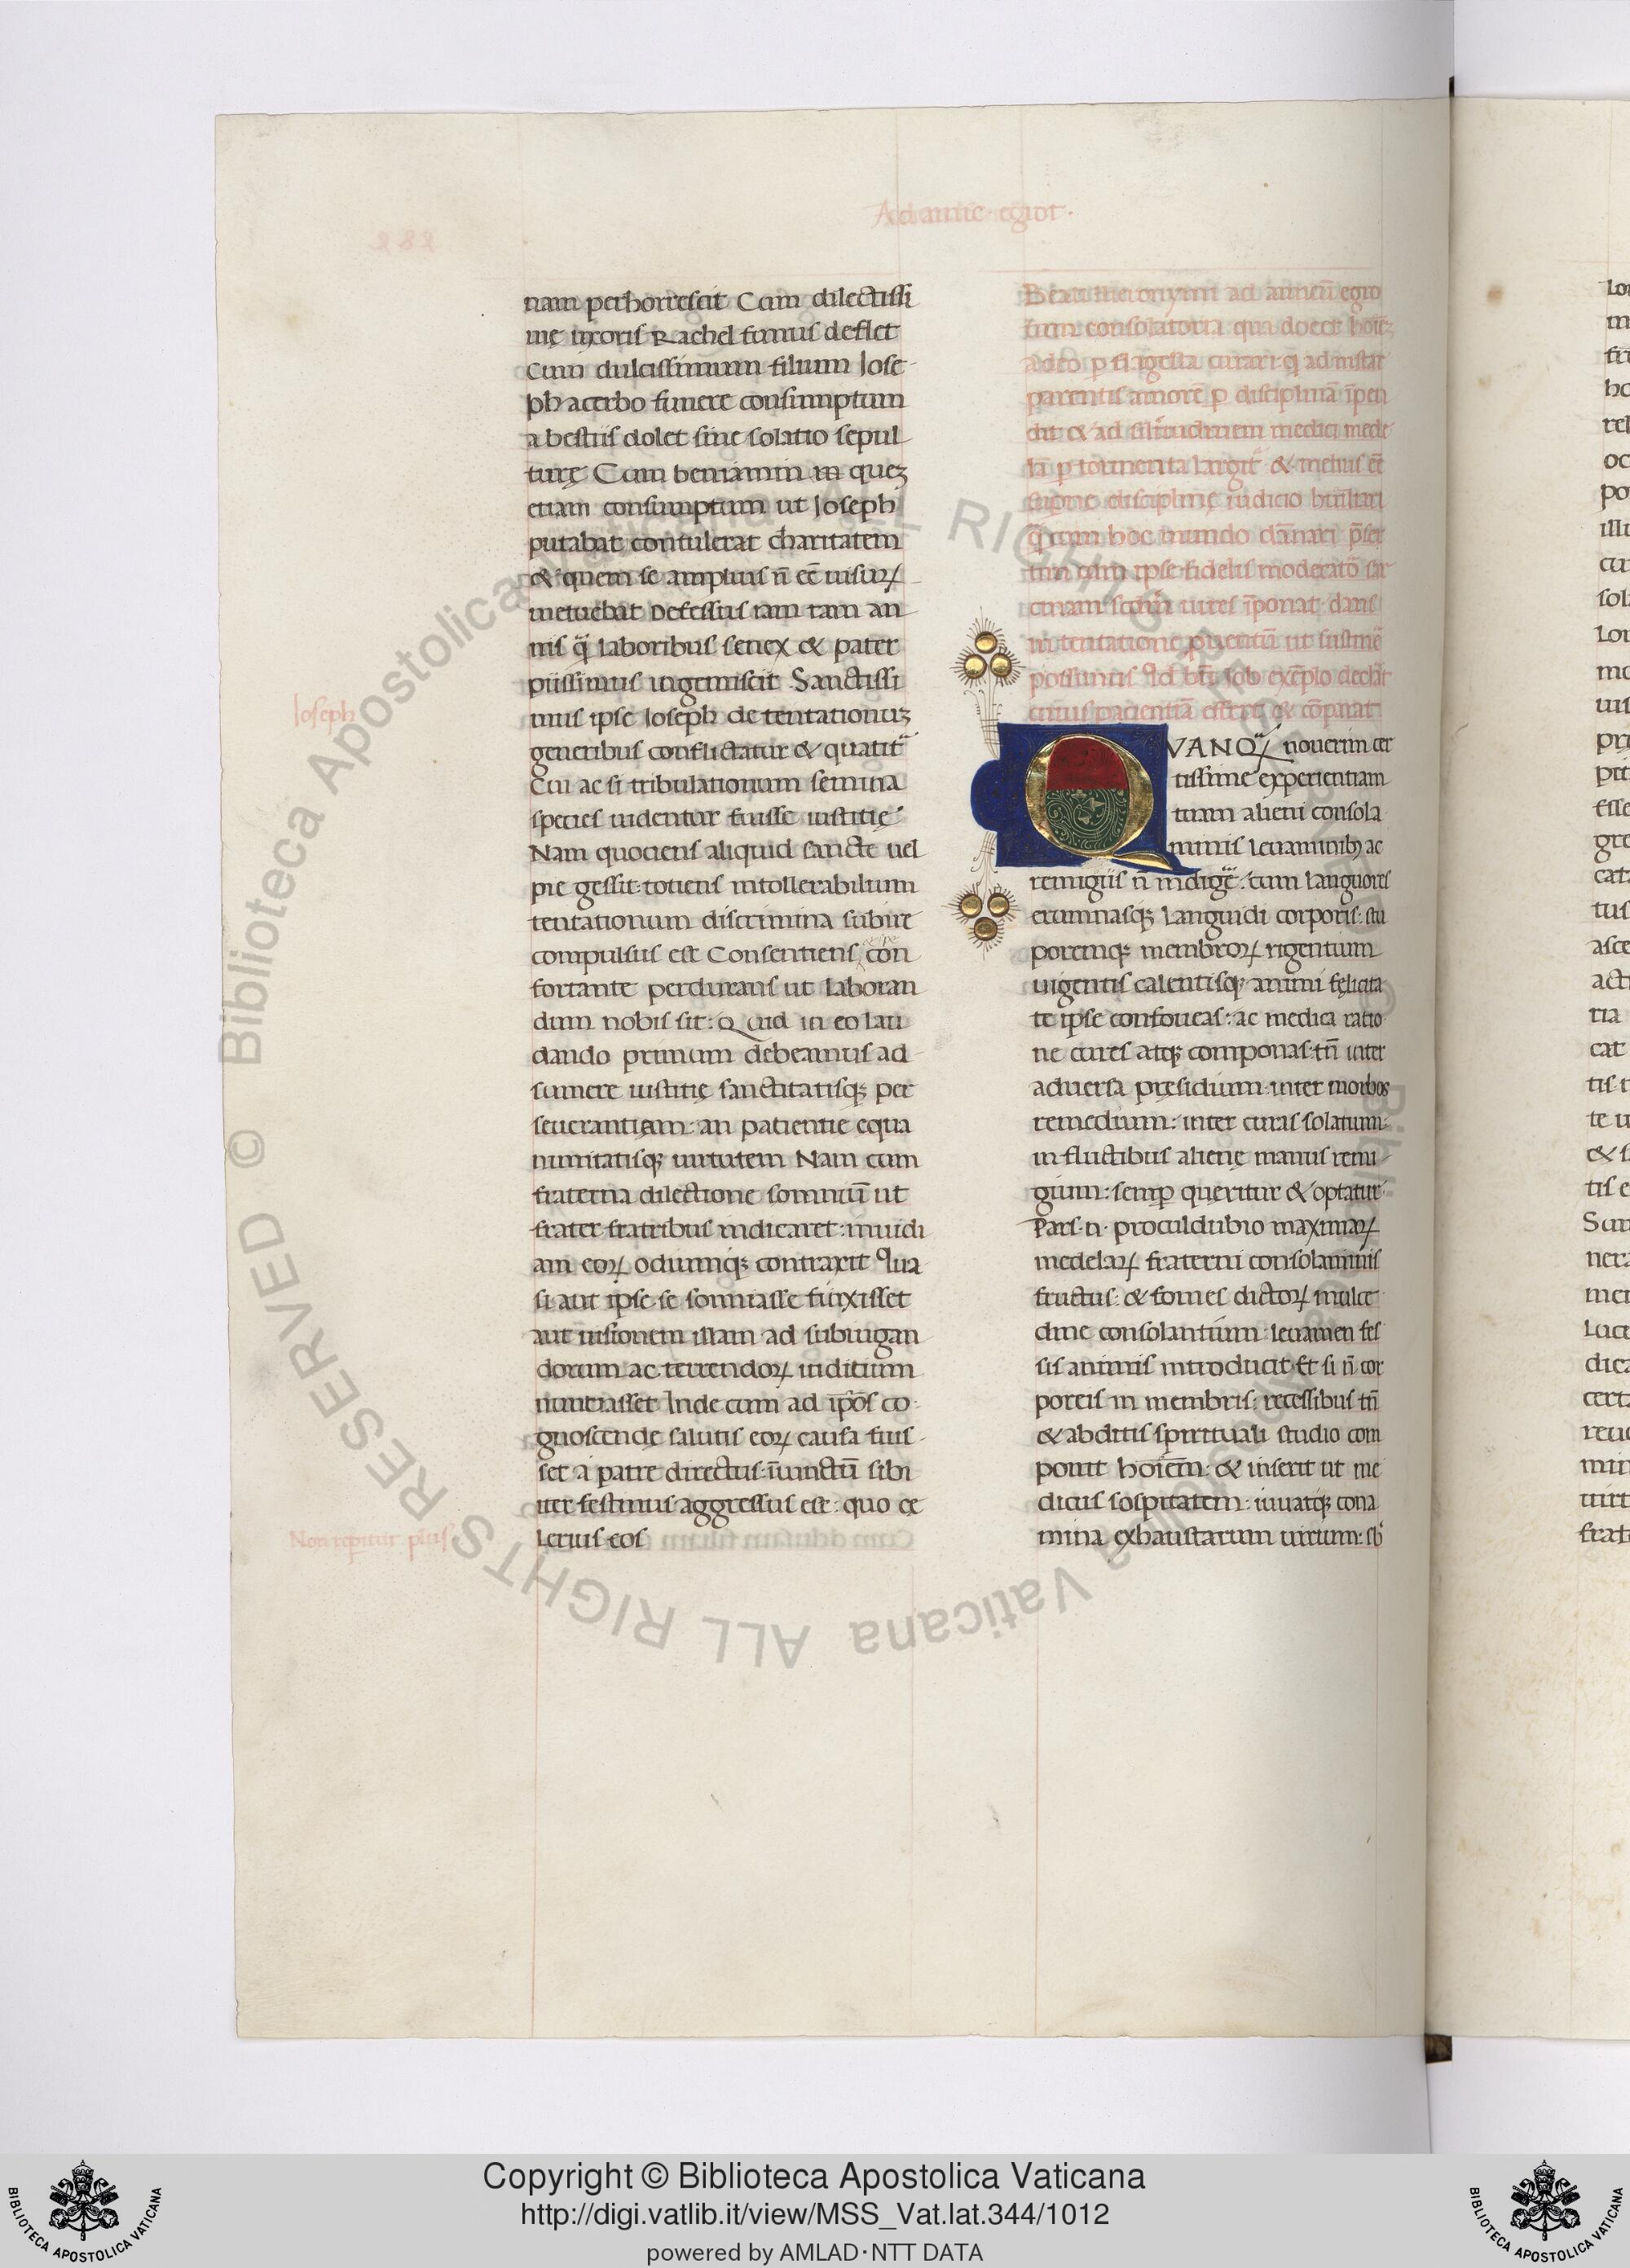 Ad amic· egrot·
282
nam perhorrescit Cum dilectissi
mę uxoris Rachel funus deflet
Cum dulcissimum filium Jose-
ph acerbo funere consumptum
a bestiis dolet sine solatio sepul
turę Cum beniamin in quez
etiam consumptum ut Joseph
putabat contulerat charitatem
& quem se amplius n̄ eē uisuꝝ
metuebat Defessus iam tam an
nis q̈ laboribus senex & pater
piissimus ingemiscit Sanctissi
mus ipse Joseph de tentationuz
generibus conflictatur & quatit᷑
Cui ac si tribulationum semina
species uidentur fuisse iustitię
Nam quociens aliquid sancte uel
pie gessit: totiens intollerabilium
tentationum discrimina subire
compulsus est Consentiens con
fortante perdurans ut laboran
dum nobis sit: Quid in eo lau
dando primum debeamus ad-
sumere iustitię sanctitatisqꝫ per
seuerantiam: an patientie equa
nimitatisqꝫ uirtutem Nam cum
fraterna dilectione somniū ut
frater fratribus indicaret: inuidi
am eoꝝ odiumqꝫ contraxit Qua
si aut ipse se somniasse finxisset
aut uisionem illam ad subiugan
dorum ac terrendoꝝ inditium
nuntiasset Inde cum ad ip̄os co-
gnoscendę salutis eoꝝ causa fuis-
set a patre directus: iniunctū sibi
iter festinus aggressus est: quo ce
lerius eos
Joseph
Non reperitur plus
Beati Hieronymi ad amicū egro
tum consolatoria qua docet hoīez
a deo ꝑ flagella curari· q̄ ad instar
parentis amorē ꝑ disciplinā īpen
dit & ad similitudinem medici mede
lā ꝑ tormenta largit᷑ & melius eē
disciplinę iudicio humiliari
q̄ cum hoc mundo dānari p̄ser
tim cum ipse fidelis moderator̄ sar
cinam scd̄m uires īponat dans
in tentatione ꝓuentū ut sustinē
possimus Id bt̄i Job exēplo declāt
cuius pacientiā effert & cōprobat
QVANQᷓꝝ nouerim cer
tissime experientiam
tuam alieni consola
minis leuaminibꝫ ac
remigiis n̄ indigē: cum languores
erumnasqꝫ languidi corporis: stu
poremqꝫ membroꝝ rigentium
uigentis calentisqꝫ animi felicita
te ipse confoueas: ac medica ratio
ne cures atqꝫ componas: tn̄ inter
aduersa presidium· inter morbos
remedium: inter curas solatium:
in fluctibus alienę manus remi-
gium: semꝑ queritur & optatur
Pars·n· proculdubio maximaꝝ
medelaꝝ fraterni consolaminis
fructus: & fomes dictoꝝ mulce
dine consolantium: leuamen fes
sis animis introducit Et si n̄ cor
poreis in membris: recessibus tn̄
& abditis spirituali studio com
ponit hoīem: & inserit ut me
dicus sospitatem: iuuatqꝫ cona
mina exhaustarum uirium: sb̄
Copyright © Biblioteca Apostolica Vaticana
http://digi.vatlib.it/view/MSS_Vat.lat.344/1012
powered by AMLAD·NTT DATA
BIBLIOTECA APOSTOLICA VATICANA
BIBLIOTECA APOSTOLICA VATICANA